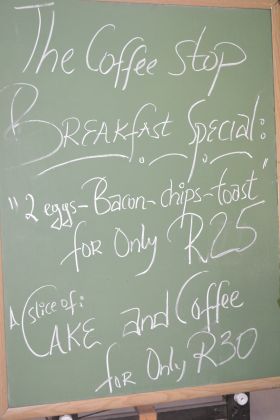 The Coffee Stop
Breakfast Special:
"2 eggs-Bacon-chips-toast"
for Only R25
A slice of:
Cake and Coffee
for Only R30